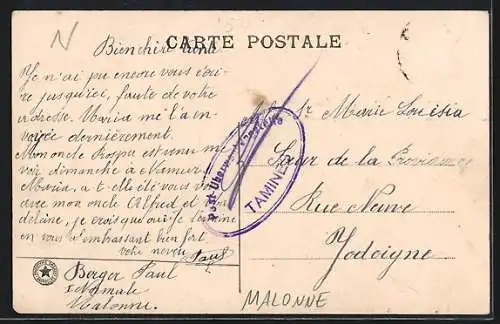 N
CARTE POSTALE
Bien chère
Je n'ai pu encore vous écri-
re jusqu'ici, faute de votre
adresse. Maria me l'a en-
voyée dernièrement.
Mon oncle Prosper est venu me
voir dimanche à Namur
Maria, a-t-elle été vous voir
avec mon oncle Alfred et
je crois que oui. Je termine
en vous embrassant bien fort
votre neveu
Paul
Berger Paul
Normale
Malonne.
Sr Marie Louisia
Sœur de la Providence
Rue Neuve
Jodoigne
Post Überwachungsstelle
TAMINES
MALONNE